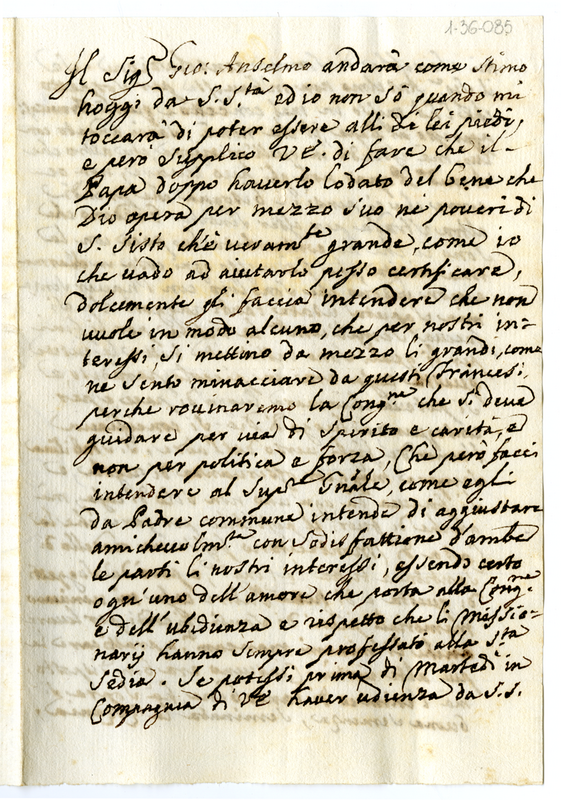 1-36-085
Il Sigr Gio: Anselmo andarà come stimo
hoggi da S. Sta ed io non sò quando mi
toccarà di poter essere alli di lei piedi,
e però supplico VE. di fare che il
Papa doppo haverlo lodato del bene che
Dio opera per mezzo suo nè poveri di
S. Sisto ch'è veramte grande, come io
che vado ad aiutarlo posso certificare,
dolcemente gli faccia intendere che non
vuole in modo alcuno, che per nostri in=
teressi, si mettino da mezzo li grandi, come
ne sento minacciare da questi Francesi,
perche rovinaremo la Congne che si deve
guidare per via di spirito e carità, e
non per politica e forza, Che però facci
intendere al Supre Gnãle, come egli
da Padre commune intende di aggiustare
amichevolmte con sodisfattione d'ambe
le parti li nostri interessi, essendo certo
ogn'uno dell'amore che porta alla Congne
e dell'ubidienza e rispetto che li Missio-
narij hanno sempre professato alla Sta
Sedia. Se potessi prima di Martedì in
Compagnia di VE haver udienza da S.S.